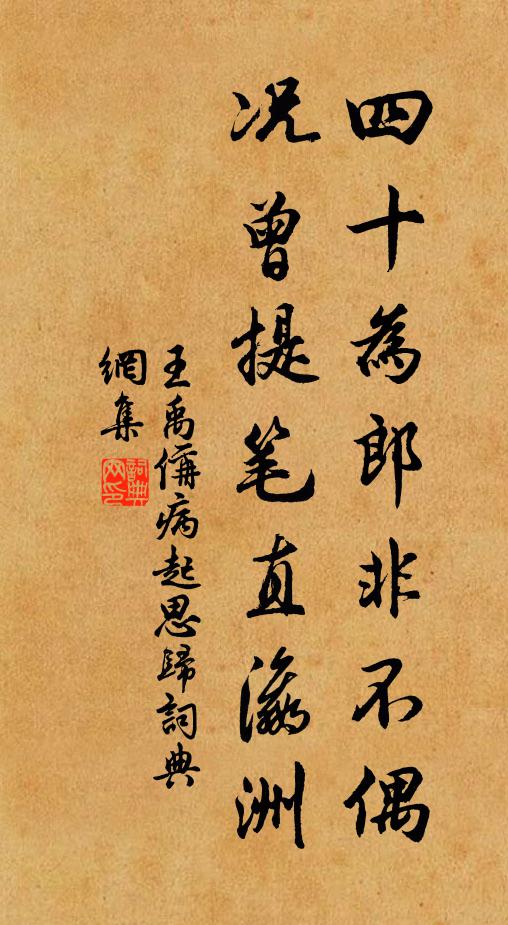 四十為郎非不偶
况曾提笔直瀛洲
王禹偁病起思歸詞典
網集
詞典
网印